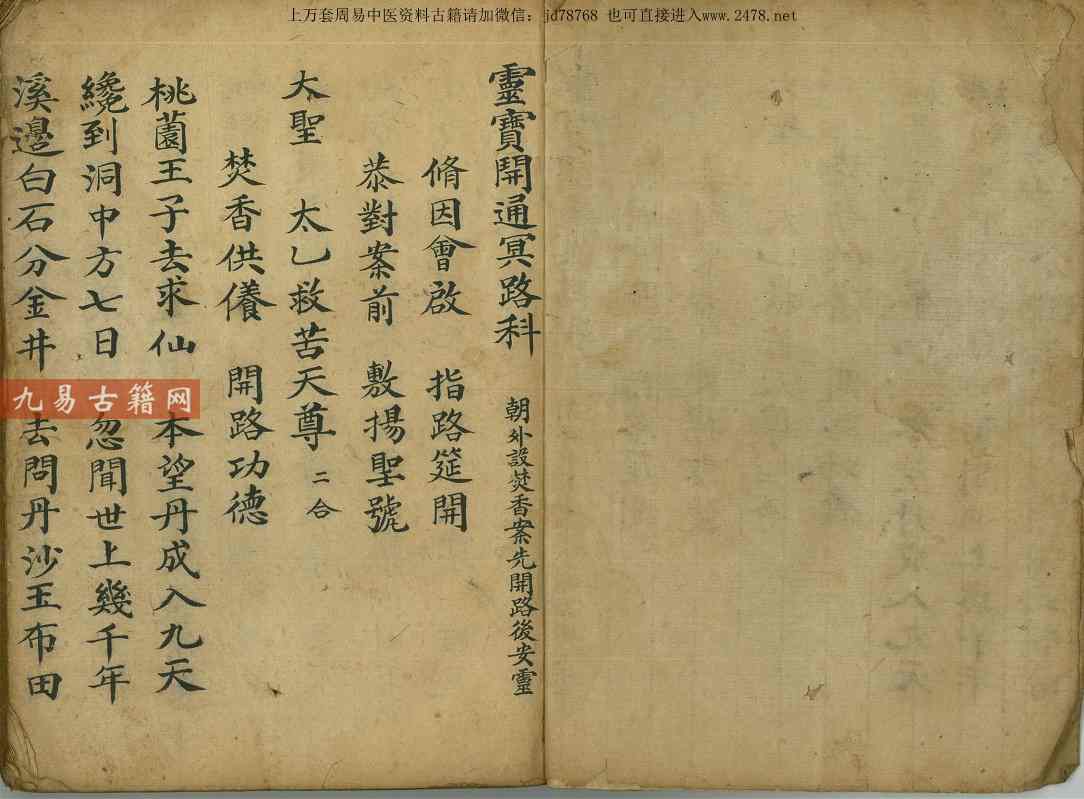 上万套周易中医资料古籍请加微信：jd78768 也可直接进入www.2478.net
靈寶開通冥路科 朝外設焚香案先開路後安靈
脩因會啟 指路筵開
恭對案前 敷揚聖號
大聖 太乙救苦天尊 二合
焚香供養 開路功德
桃園王子去求仙 本望丹成入九天
纔到洞中方七日 忽聞世上幾千年
溪邊白石分金井 去問丹沙玉布田
九易古籍网